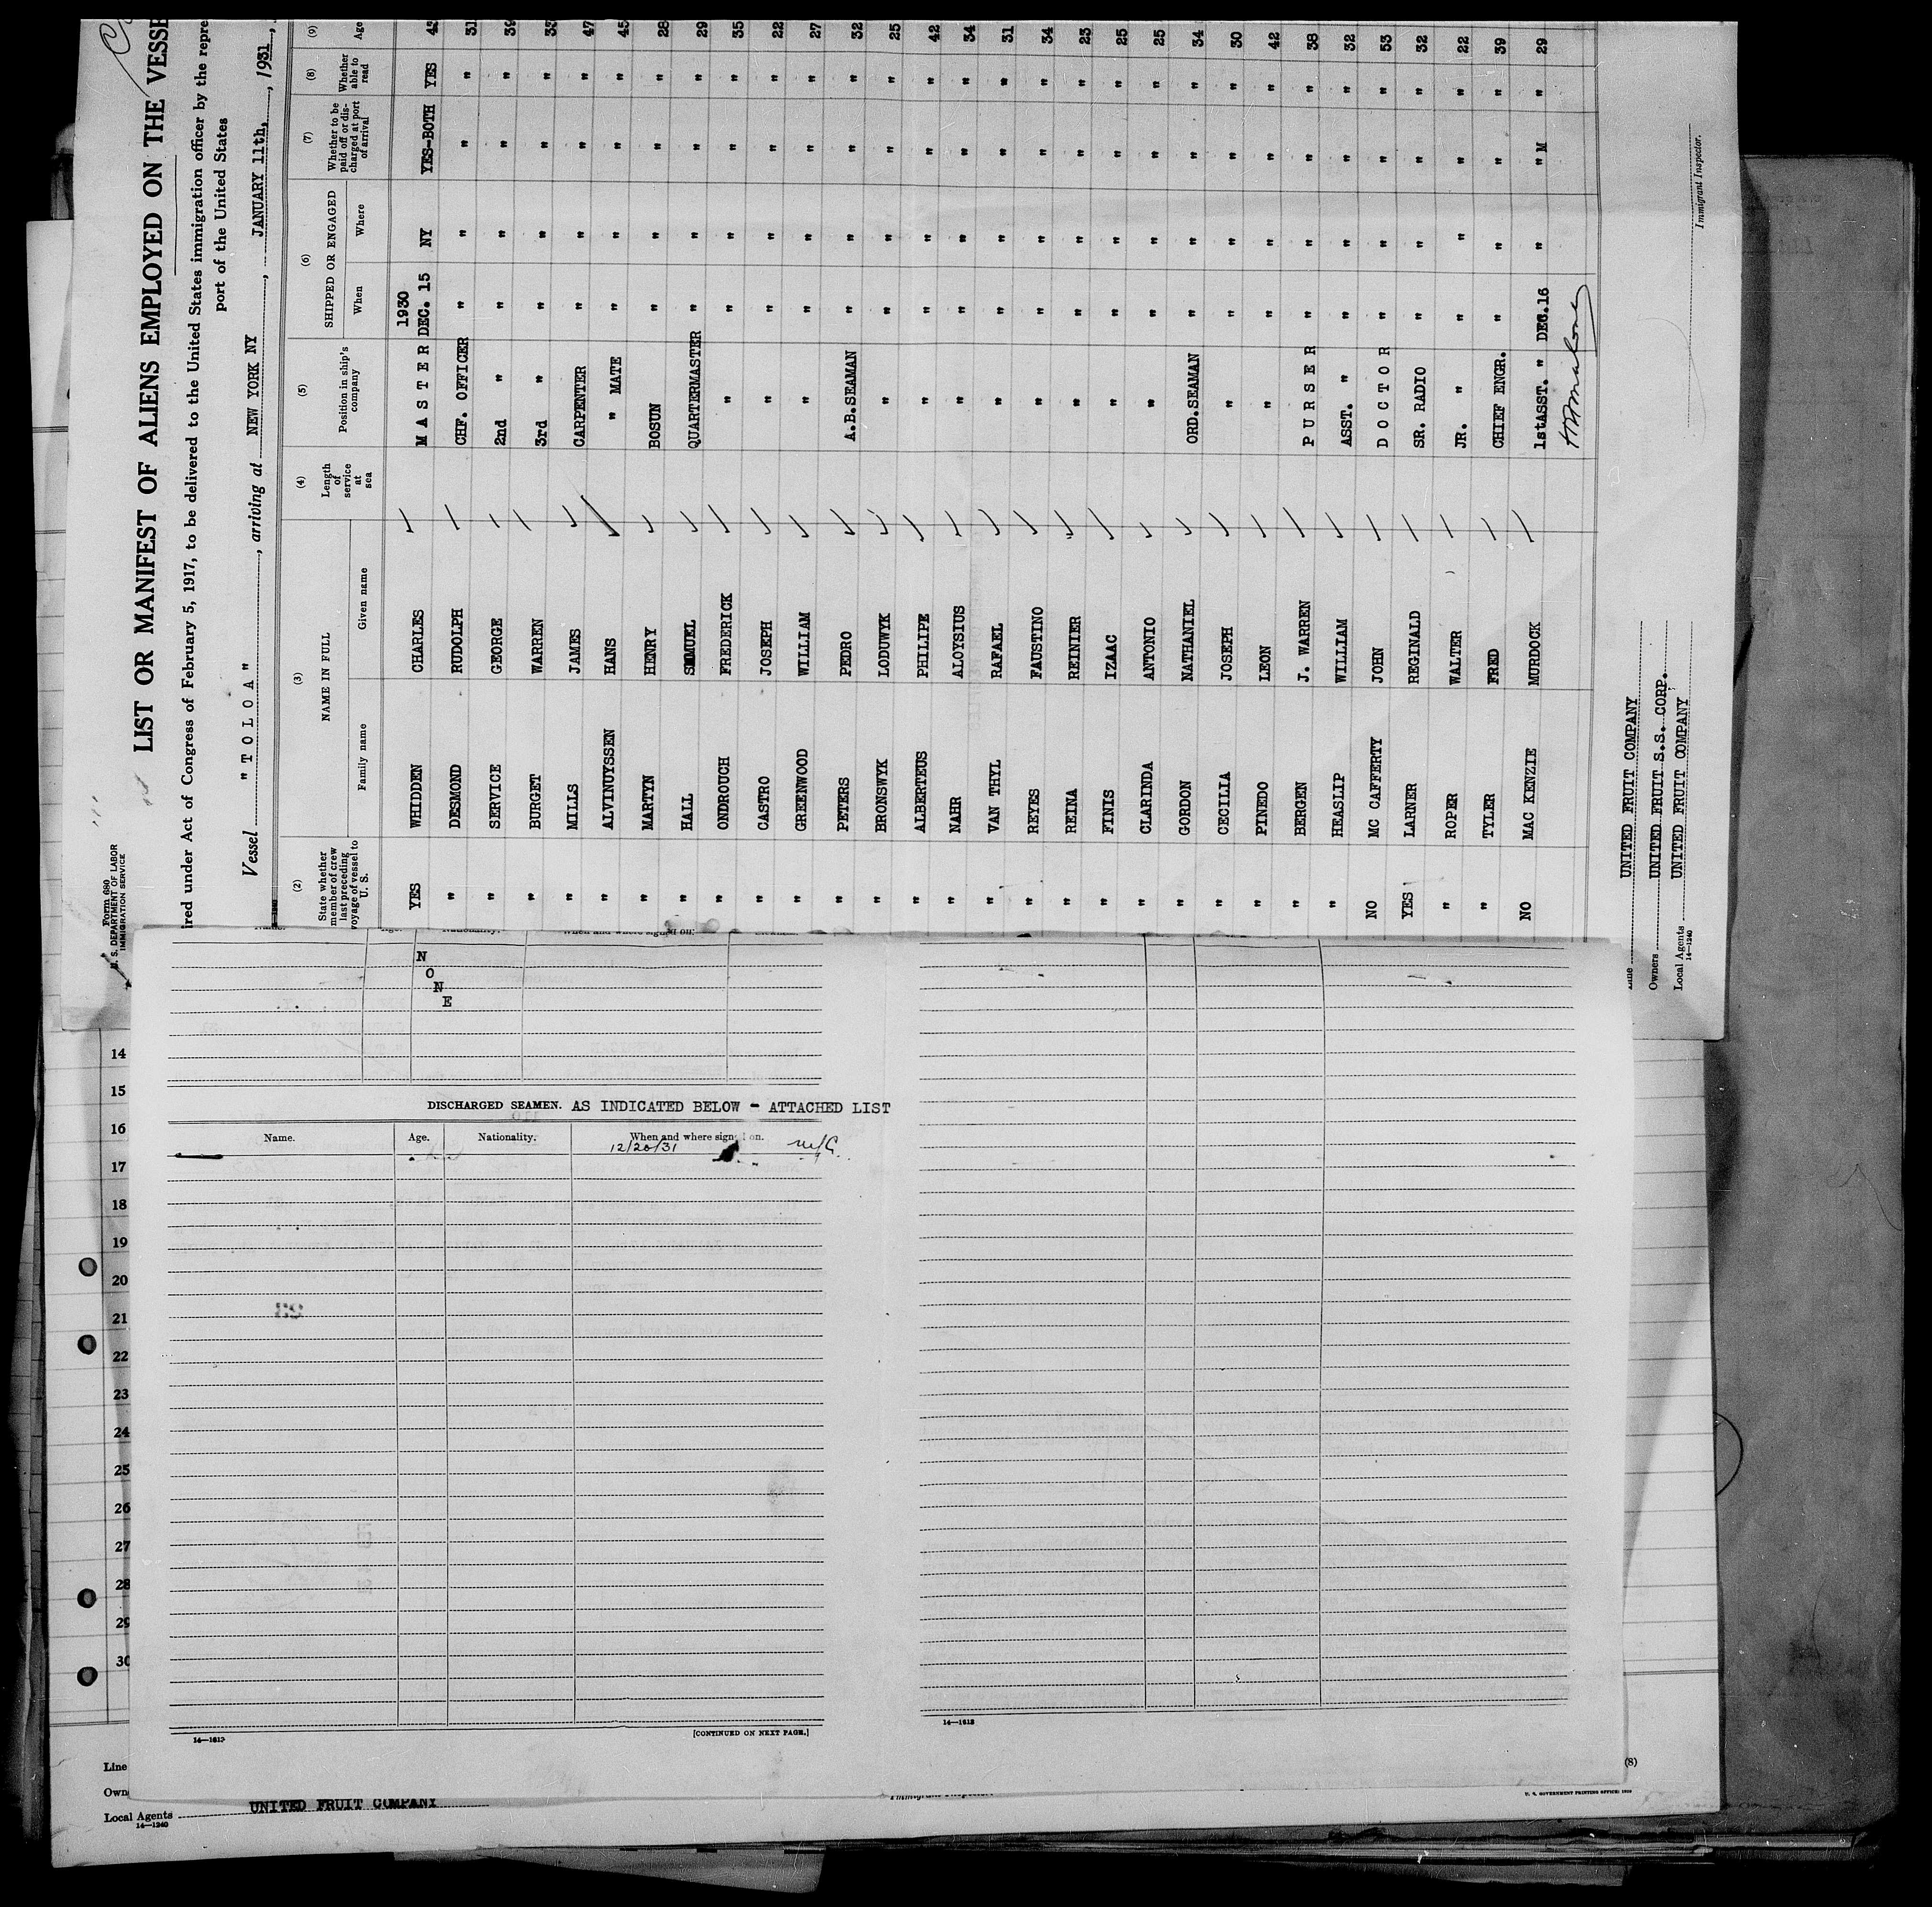 Form 680
U. S. DEPARTMENT OF LABOR
IMMIGRATION SERVICE
LIST OR MANIFEST OF ALIENS EMPLOYED ON THE VESSE
ired under Act of Congress of February 5, 1917, to be delivered to the United States immigration officer by the repre
port of the United States
Vessel "TOLOA", arriving at NEW YORK NY, JANUARY 11th, 1931,
(2) (3) (4) (5) (6) (7) (8) (9)
State whether member of crew last preceding voyage of vessel to U. S. NAME IN FULL Family name Given name Length of service at sea Position in ship's company SHIPPED OR ENGAGED When Where Whether to be paid off or discharged at port of arrival Whether able to read Age
1930
YES WHIDDEN CHARLES MASTER DEC. 15 NY YES-BOTH YES 43
" DESMOND RUDOLPH CHF. OFFICER " " " " 31
" SERVICE GEORGE 2nd " " " " " 39
" BURGET WARREN 3rd " " " " "
" MILLS JAMES CARPENTER " " " " 47
" ALVINUYSSEN HANS " MATE " " " " 45
" MARTYN HENRY BOSUN " " " " 28
" HALL SAMUEL QUARTERMASTER " " " " 29
" ONDROUCH FREDERICK " " " " " 35
" CASTRO JOSEPH " " " " " 22
" GREENWOOD WILLIAM " " " " " 27
" PETERS PEDRO A.B.SEAMAN " " " " 32
" BRONSWYK LODUWYK " " " " " 25
" ALBERTEUS PHILIPE " " " " " 42
" NAHR ALOYSIUS " " " " " 34
" VAN THYL RAFAEL " " " " " 31
" REYES FAUSTINO " " " " " 34
" REINA REINIER " " " " " 23
" FINIS IZAAC " " " " " 25
" CLARINDA ANTONIO " " " " " 25
" GORDON NATHANIEL ORD.SEAMAN " " " " 34
" CECILIA JOSEPH " " " " " 30
" PINEDO LEON " " " " " 42
" BERGEN J. WARREN PURSER " " " " 38
" HEASLIP WILLIAM ASST. " " " " " 32
NO MC CAFFERTY JOHN DOCTOR " " " " 53
YES LARNER REGINALD SR. RADIO " " " " 32
" ROPER WALTER JR. " " " " " 22
" TYLER FRED CHIEF ENGR. " " " " 39
NO MAC KENZIE MURDOCK 1stASST. " DEC.16 " " M " 29
Line UNITED FRUIT COMPANY
Owners UNITED FRUIT S.S. CORP.
Local Agents UNITED FRUIT COMPANY
14—1240
Immigrant Inspector.
N
O
N
E
DISCHARGED SEAMEN. AS INDICATED BELOW - ATTACHED LIST
Name. Age. Nationality. When and where signed on.
12/20/31
14—1613
[CONTINUED ON NEXT PAGE.]
14—1613
14
15
16
17
18
19
20
21
22
23
24
25
26
27
28
29
30
Line
Own
Local Agents UNITED FRUIT COMPANY
14—1240
(8)
U. S. GOVERNMENT PRINTING OFFICE: 1929